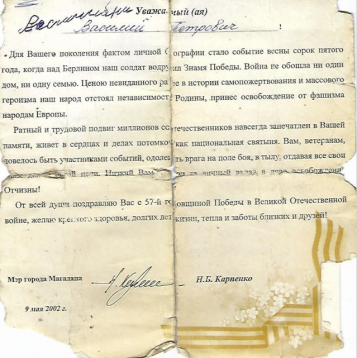 Уважаемый (ая)
Василий Петрович
Для Вашего поколения фактом личной биографии стало событие весны сорок пятого
года, когда над Берлином наш солдат водрузил Знамя Победы. Война не обошла ни один
дом, ни одну семью. Ценою невиданного в истории самопожертвования и массового
героизма наш народ отстоял независимость Родины, принес освобождение от фашизма
народам Европы.
Ратный и трудовой подвиг миллионов соотечественников навсегда запечатлен в Вашей
памяти, живет в сердцах и делах потомков как национальная святыня. Вам, ветеранам,
довелось быть участниками событий, одолеть врага на поле боя, в тылу, отдавая все свои
Низкий Вам за личный вклад в дело освобождения
Отчизны!
От всей души поздравляю Вас с 57-й годовщиной Победы в Великой Отечественной
войне, желаю крепкого здоровья, долгих лет жизни, тепла и заботы близких и друзей!
Мэр города Магадана
Н.Б. Карпенко
9 мая 2002 г.